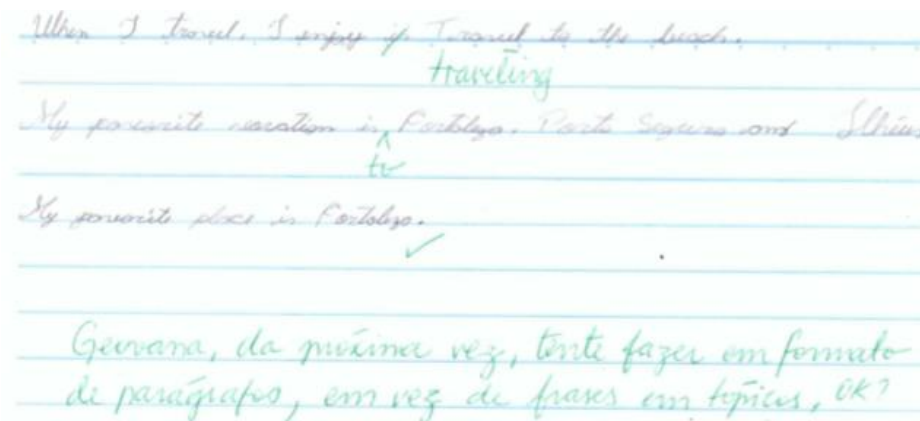 When I travel, I enjoy if Travel to the beach.
traveling
My favourite vacation is Fortaleza, Porto Seguro and Ilhéus
to
My favourite place is Fortaleza.
Geovana, da próxima vez, tente fazer em formato
de parágrafos, em vez de frases em tópicos, OK?